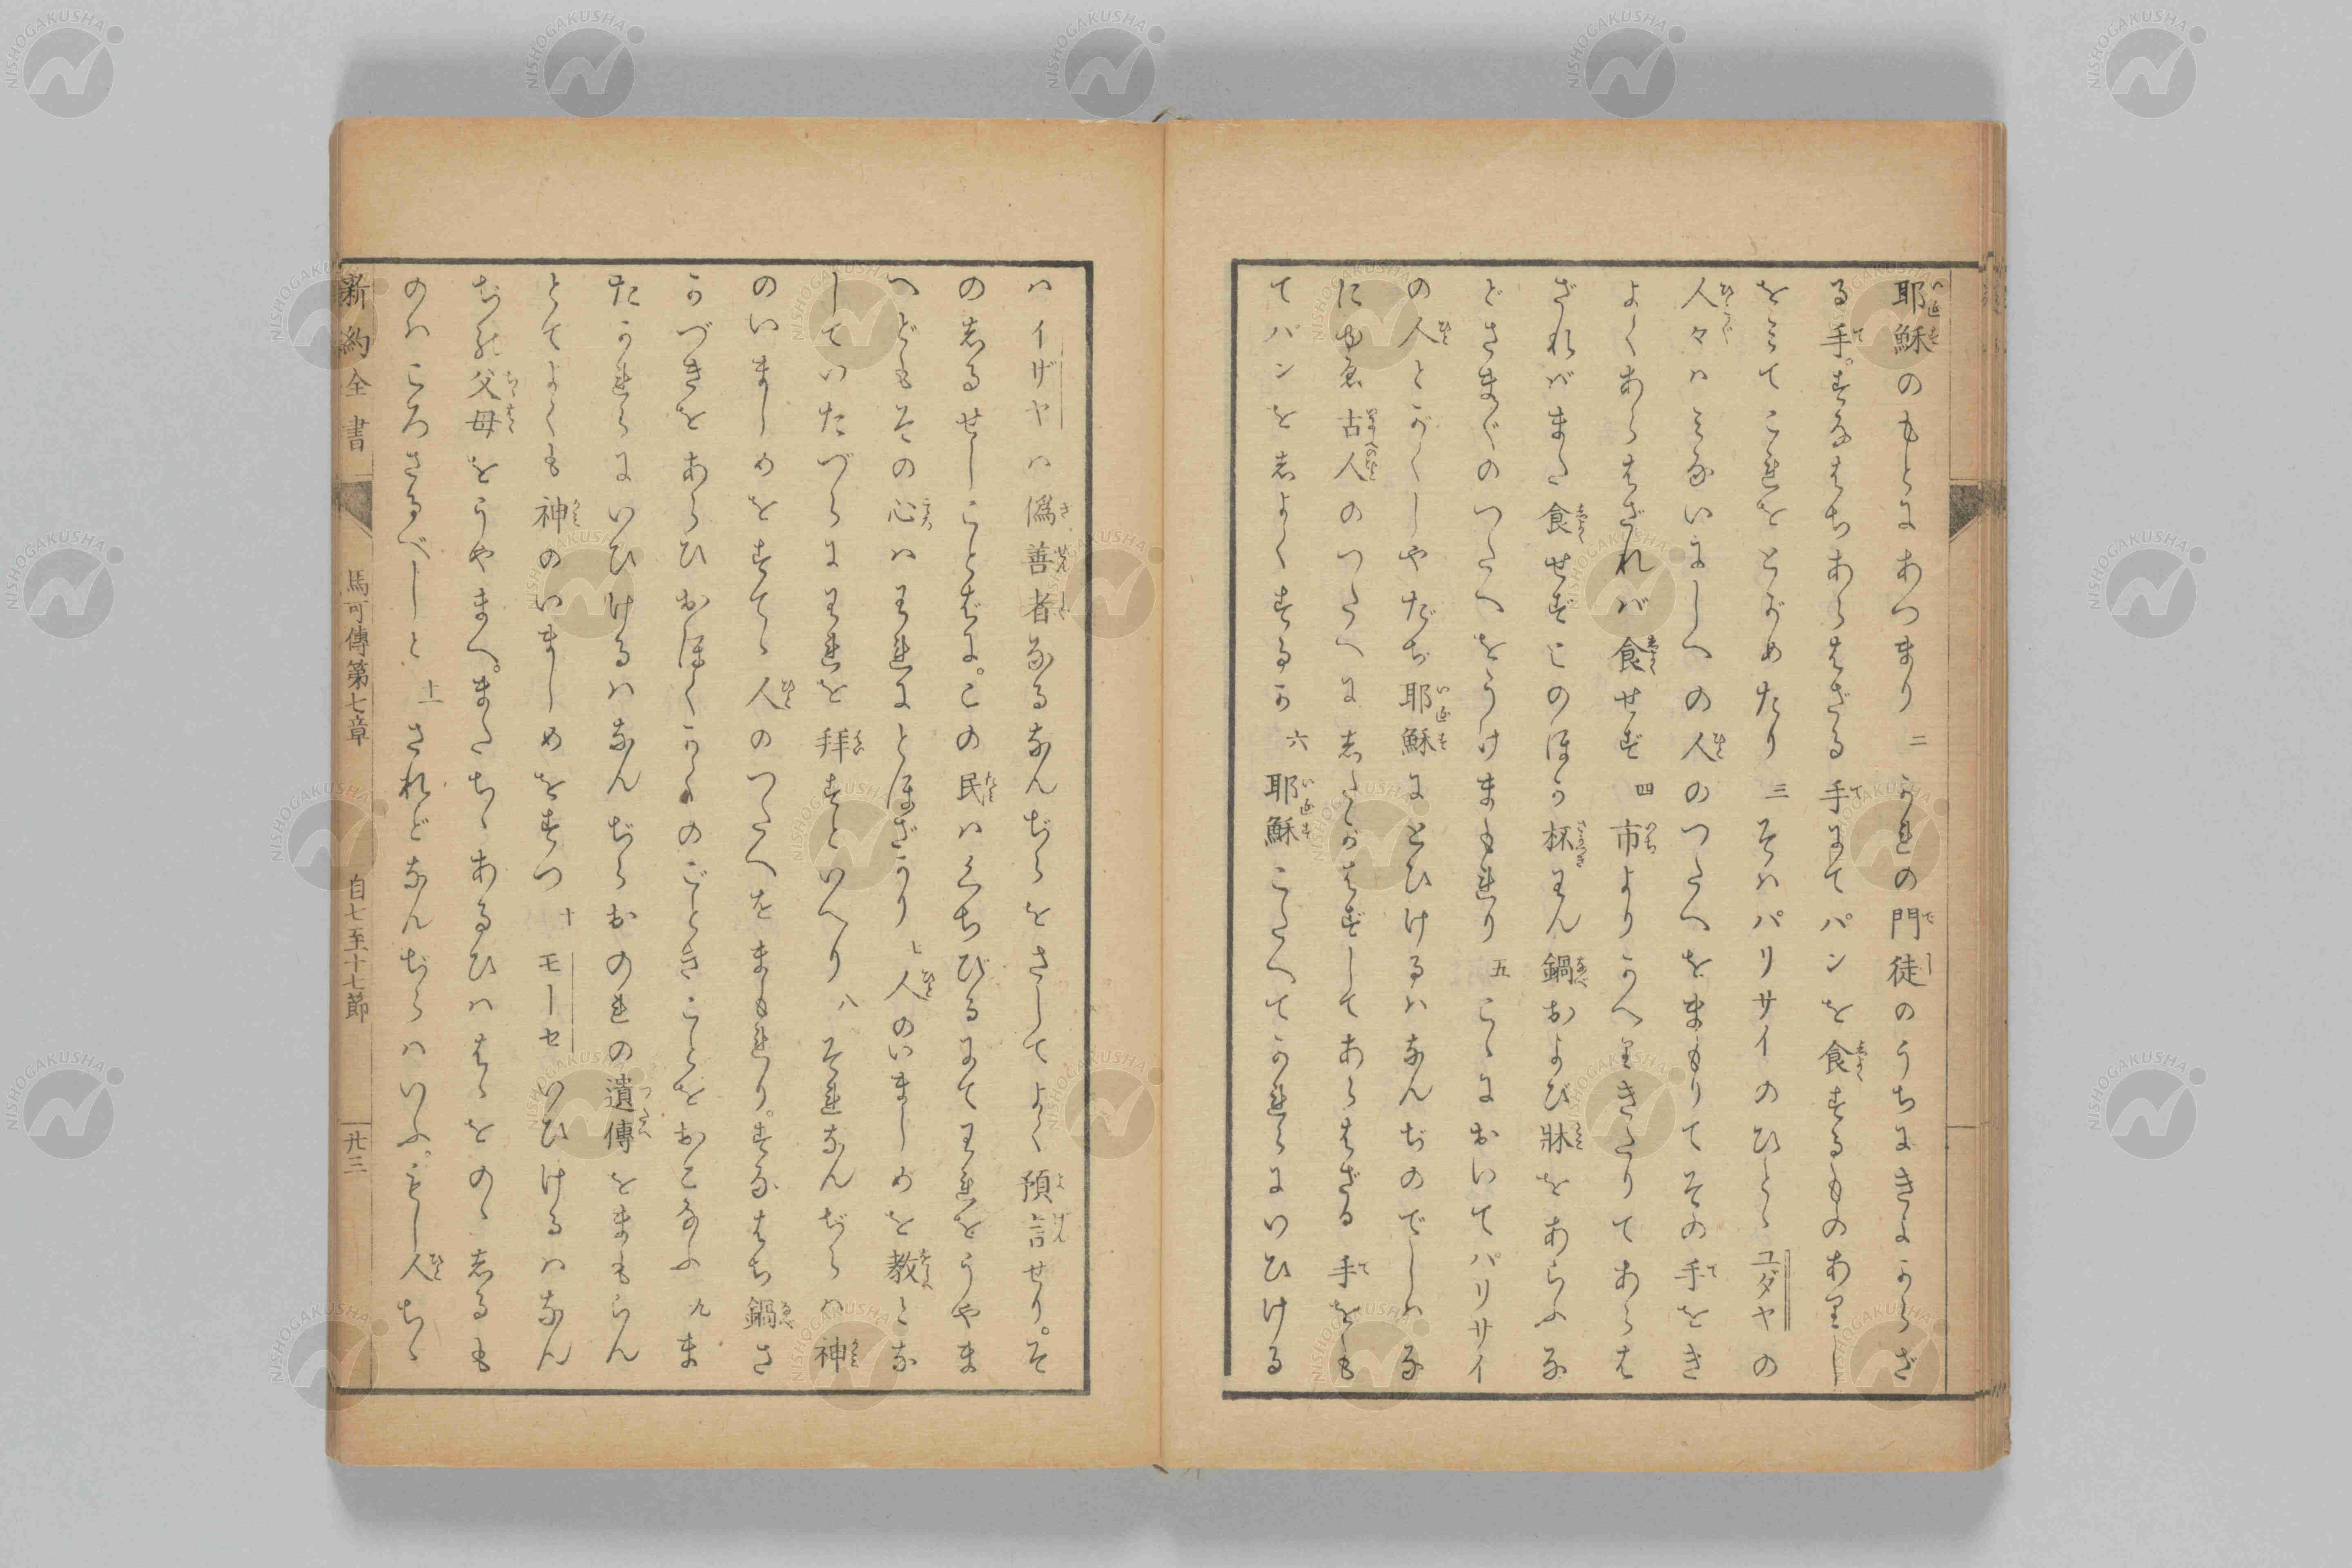 耶穌のもとにあつまり 二 かれの門徒のうちにきよからざ
る手。すなはちあらはざる手にてパンを食するものありし
をミてこれをとがめたり 三 そハパリサイのひとゝユダヤの
人々ハミないにしへの人のつたへをまもりてその手をき
よくあらはざれバ食せず 四 市よりかへりきたりてあらは
ざれバまた食せずこのほか杯わん鍋および牀をあらふな
どさま〴〵のつたへをうけまもれり 五 こゝにおいてパリサイ
の人とがくしやたち耶穌にとひけるハなんぢのでしハな
にゆゑ古人のつたへにしたがはずしてあらはざる手をも
てパンをしよくするか 六 耶穌こたへてかれらにいひける
ハイザヤハ僞善者なるなんぢらをさしてよく預言せり。そ
のしるせしことばに。この民ハくちびるにてわれをうやま
へどもその心ハわれにとほざかり 七 人のいましめを教とな
していたづらにわれを拜すといへり 八 それなんぢらハ神
のいましめをすてゝ人のつたへをまもれり。すなはち鍋さ
かづきをあらひおほくかゝのごときことをおこなふ 九 ま
たかれらにいひけるハなんぢらおのれの遺傳をまもらん
とてよくも神のいましめをすつ 十 モーセいひけるハなん
ぢの父母をうやまへ。またちゝあるひハはゝをのゝしるも
のハころさるべしと 十一 されどなんぢらハいふ。もし人ちゝ
新約全書 馬可傳第七章 自七至十七節 廿三